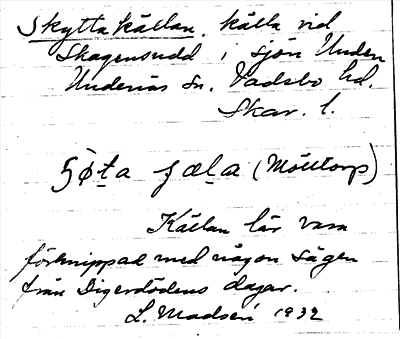 Skyttakällan, källa vid
Skagensudd i sjön Unden
Undenäs sn. Vadsbo hd.
Skar. l.
(Mölltorp)
Källan lär vara
förknippad med någon sägen
från Digerdödens dagar.
L. Madsén 1932